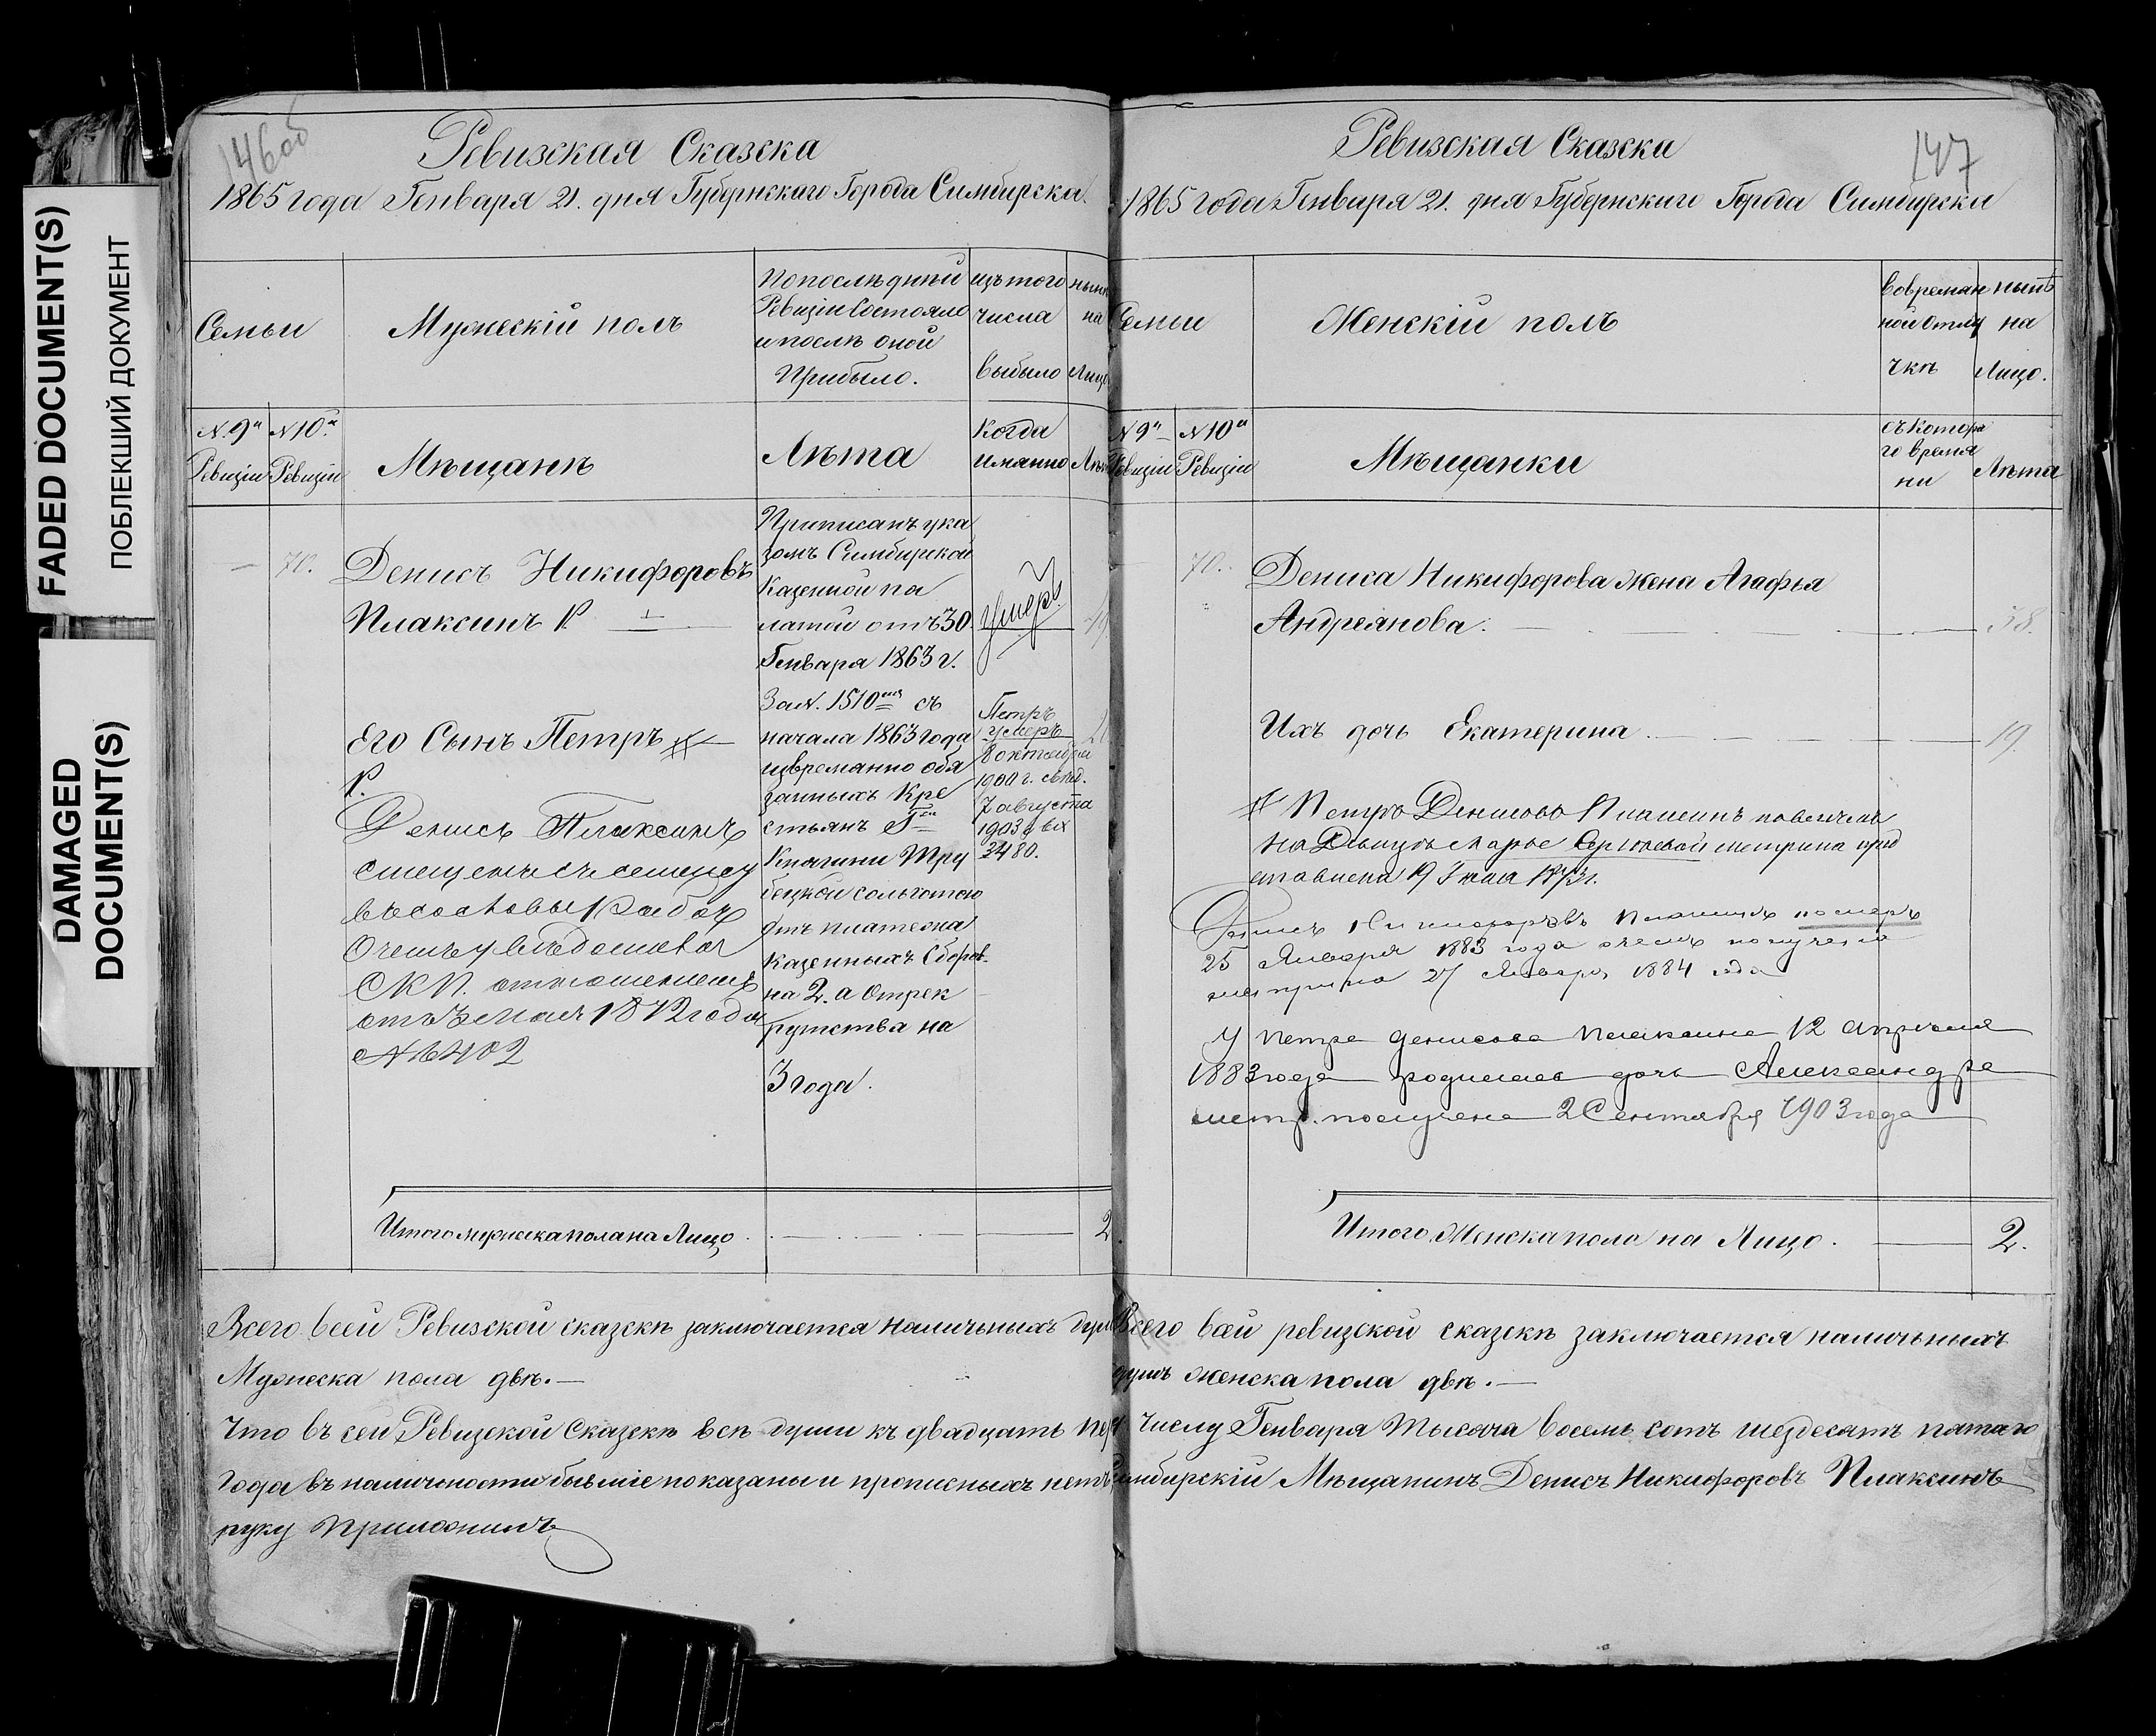 FADED DOCUMENT(S)
ПОБЛЕКШИЙ ДОКУМЕНТ
DAMAGED
DOCUMENT(S)
146об
Ревизская Сказска
1865 года Генваря 21. дня Губернскаго Города Симбирска.
Семьи
Мужескій полъ
По послѣдней
Ревизіи Состояло
и послѣ оной
Прибыло.
изъ того
числа
выбыло
на
Лицо
N. 9й
Ревизіи
N 10.й
Ревизіи
Мѣщанѣ
Лѣта
Когда
имянно
70.
Денисъ Никифоровъ
Плаксинъ Р.
Его Сынъ Петръ
Р.
Денисъ Плаксинъ
отъ 3 мая 1872 года
№ 6402
Приписанъ ука
зомъ Симбирской
Казенной па
латой отъ 30
Генваря 1863 г.
За N. 1510мъ съ
начала 1863 года
изъ временно обя
занныхъ Кре
стьянъ Г.
Княгини Тру
бецкой сольготою
отъ платежа
казенныхъ сборов.
на 2. а от рек
рутства на
3 года.
Умеръ
Петръ
умеръ
8 октября
1900 г.
7 августа
1903 г.
3480.
Итого мужеска пола на Лицо.
2
Всего в сей Ревизской сказскѣ заключается наличныхъ душ
Мужеска пола двѣ.—
Что въ сей Ревизской Сказскѣ всѣ души къ двадцать пер
года въ наличности бывшіе показаны и прописныхъ нетъ
руку приложилъ
147
Ревизская Сказски
1865 года Генваря 21. дня Губернскаго Города Симбирска
Семьи
Женскій полъ
во времян
ной отлу
чкѣ
нынѣ
на
Лицо.
N 9й
Ревизіи
N 10й
Ревизіи
Мѣщанки
съ котора
го время
ни
Лѣта
70.
Дениса Никифорова жена Агафья
Андреянова.
38.
Ихъ дочь Екатерина.
19.
Петръ Денисовъ Плаксинъ повенчанъ
на Марье метрика пред
ставлена 19
Денисъ Никифоровъ Плаксинъ померъ
25 Января 1883 года о чемъ получена
метрика 27 Января 1884 года
У Петра Денисова Плаксина 12 Апреля
1883 года родилась дочь Александра
метр. получена 2 Сентября 1903 года
Итого Женска пола на Лицо.
2.
Всего в сей ревизской сказскѣ заключается наличныхъ
душъ женска пола двѣ.—
числу Генваря Тысяча восемь сотъ шездесятъ пятаго
Симбирскій Мѣщанинъ Денисъ Никифоровъ Плаксинъ